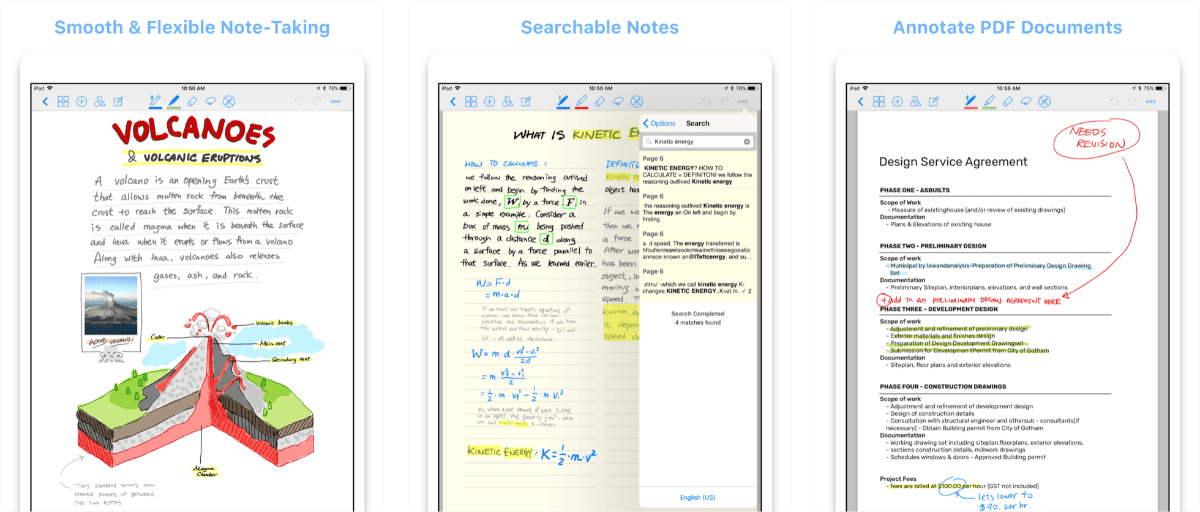 Smooth & Flexible Note-Taking
iPad
10:50 AM
75%
VOLCANOES
& VOLCANIC ERUPTIONS
A volcano is an opening Earth's crust
that allows molten rock from beneath the
crust to reach the surface. This molten rock
is called magma when it is beneath the surface
and lava when it erupts or flows from a volcano
Along with lava, volcanoes also releases
gases, ash, and rock.
ACTIVE VOLCANO
Volcanic bombs
Crater
Main vent
Secondary vent
Magma
Chamber
THIS DIAGRAM SHOWS HOW
MAGMA POWERS UP BETWEEN
THE TWO PLATES
Searchable Notes
iPad
10:50 AM
75%
WHAT IS KINETIC E
HOW TO CALCULATE =
we follow the reasoning outlined
on left and begin by finding the
work done, W, by a force F, in
a simple example. Consider a
box of mass m being pushed
through a distance d along
a surface by a force parallel to
that surface. As we learned earlier.
W = F·d
= m·a·d
W = m·d·(vf²-vi²)/2d
= m·(vf²-vi²)/2
= 1/2·m·vf² - 1/2·m·vi²
KINETIC ENERGY = K = 1/2·m·v²
DEFINITI
Kinetic e
object has
If we w
then we
a force
After wor
has been
object, a
moving
speed
Known a
It depen
speed
Options
Search
Kinetic energy
Page 6
KINETIC ENERGY? HOW TO
CALCULATE = DEFINITONI we follow the
reasoning outlived Kinetic energy
Page 6
the reasoning outlived Kinetic energy is
The energy an On left and begin by
finding
Page 6
a. d speed. The energy transferred is
Page 6
.ztmu' -which we call kinetic energy K-
changes KINETIC ENERGY..K=zl.m. ✓ 2
Search Completed
4 matches found
English (US)
Annotate PDF Documents
iPad
10:55 AM
75%
NEEDS
REVISION
Design Service Agreement
PHASE ONE - ASBUILTS
Scope of Work
- Measure of existinghouse (and/or review of existing drawings)
Documentation
- Plans & Elevations of existing house
PHASE TWO - PRELIMINARY DESIGN
Scope of work
- Municipal by lawandanalysis-Preparation of Preliminary Design Drawing
Set
Documentation
- Preliminary Siteplan, interiorplans, elevations, and wall sections
+ add in an PRELIMINARY DESIGN AGREEMENT HERE
PHASE THREE - DEVELOPMENT DESIGN
Scope of work
- Adjustment and refinement of preliminary design
- Exterior materials and finishes design
- Preparation of Design Development Drawingset
- Submission for DevelopmentPermit from City of Gotham
Documentation
- Siteplan, floor plans and exterior elevations
PHASE FOUR - CONSTRUCTION DRAWINGS
Scope of work
- Adjustment and refinement of development design
- Design of construction details
- Consultation with structural engineer and othersub - consultants(if
necessary) - Obtain Building permit from City of Gotham
Documentation
- Working drawing set including siteplan.floorplans, exterior elevations.
- sections construction details, millwork drawings
- Schedules windows & doors - Approved Building permit
Project Fees
- fees are billed at $100.00 per hour (GST not included)
lets lower to
$90. per hr.